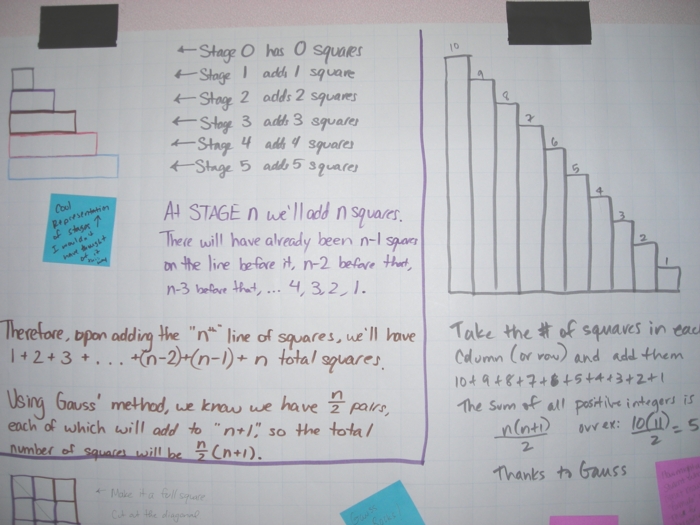 ← Stage 0 has 0 squares
← Stage 1 adds 1 square
← Stage 2 adds 2 squares
← Stage 3 adds 3 squares
← Stage 4 adds 4 squares
← Stage 5 adds 5 squares
Cool
Representation
of stages ↑
I wouldn't
have thought
of it
At STAGE n we'll add n squares.
There will have already been n-1 squares
on the line before it, n-2 before that,
n-3 before that, ... 4, 3, 2, 1.
Therefore, upon adding the "nth" line of squares, we'll have
1+2+3+...+(n-2)+(n-1)+n total squares.
Using Gauss' method, we know we have n/2 pairs,
each of which will add to "n+1," so the total
number of squares will be n/2 (n+1).
← Make it a full square
Cut at the diagonal
10
9
8
7
6
5
4
3
2
1
Take the # of squares in each
Column (or row) and add them
10+9+8+7+6+5+4+3+2+1
The sum of all positive integers is
n(n+1)/2 our ex: 10(11)/2 = 5
Thanks to Gauss